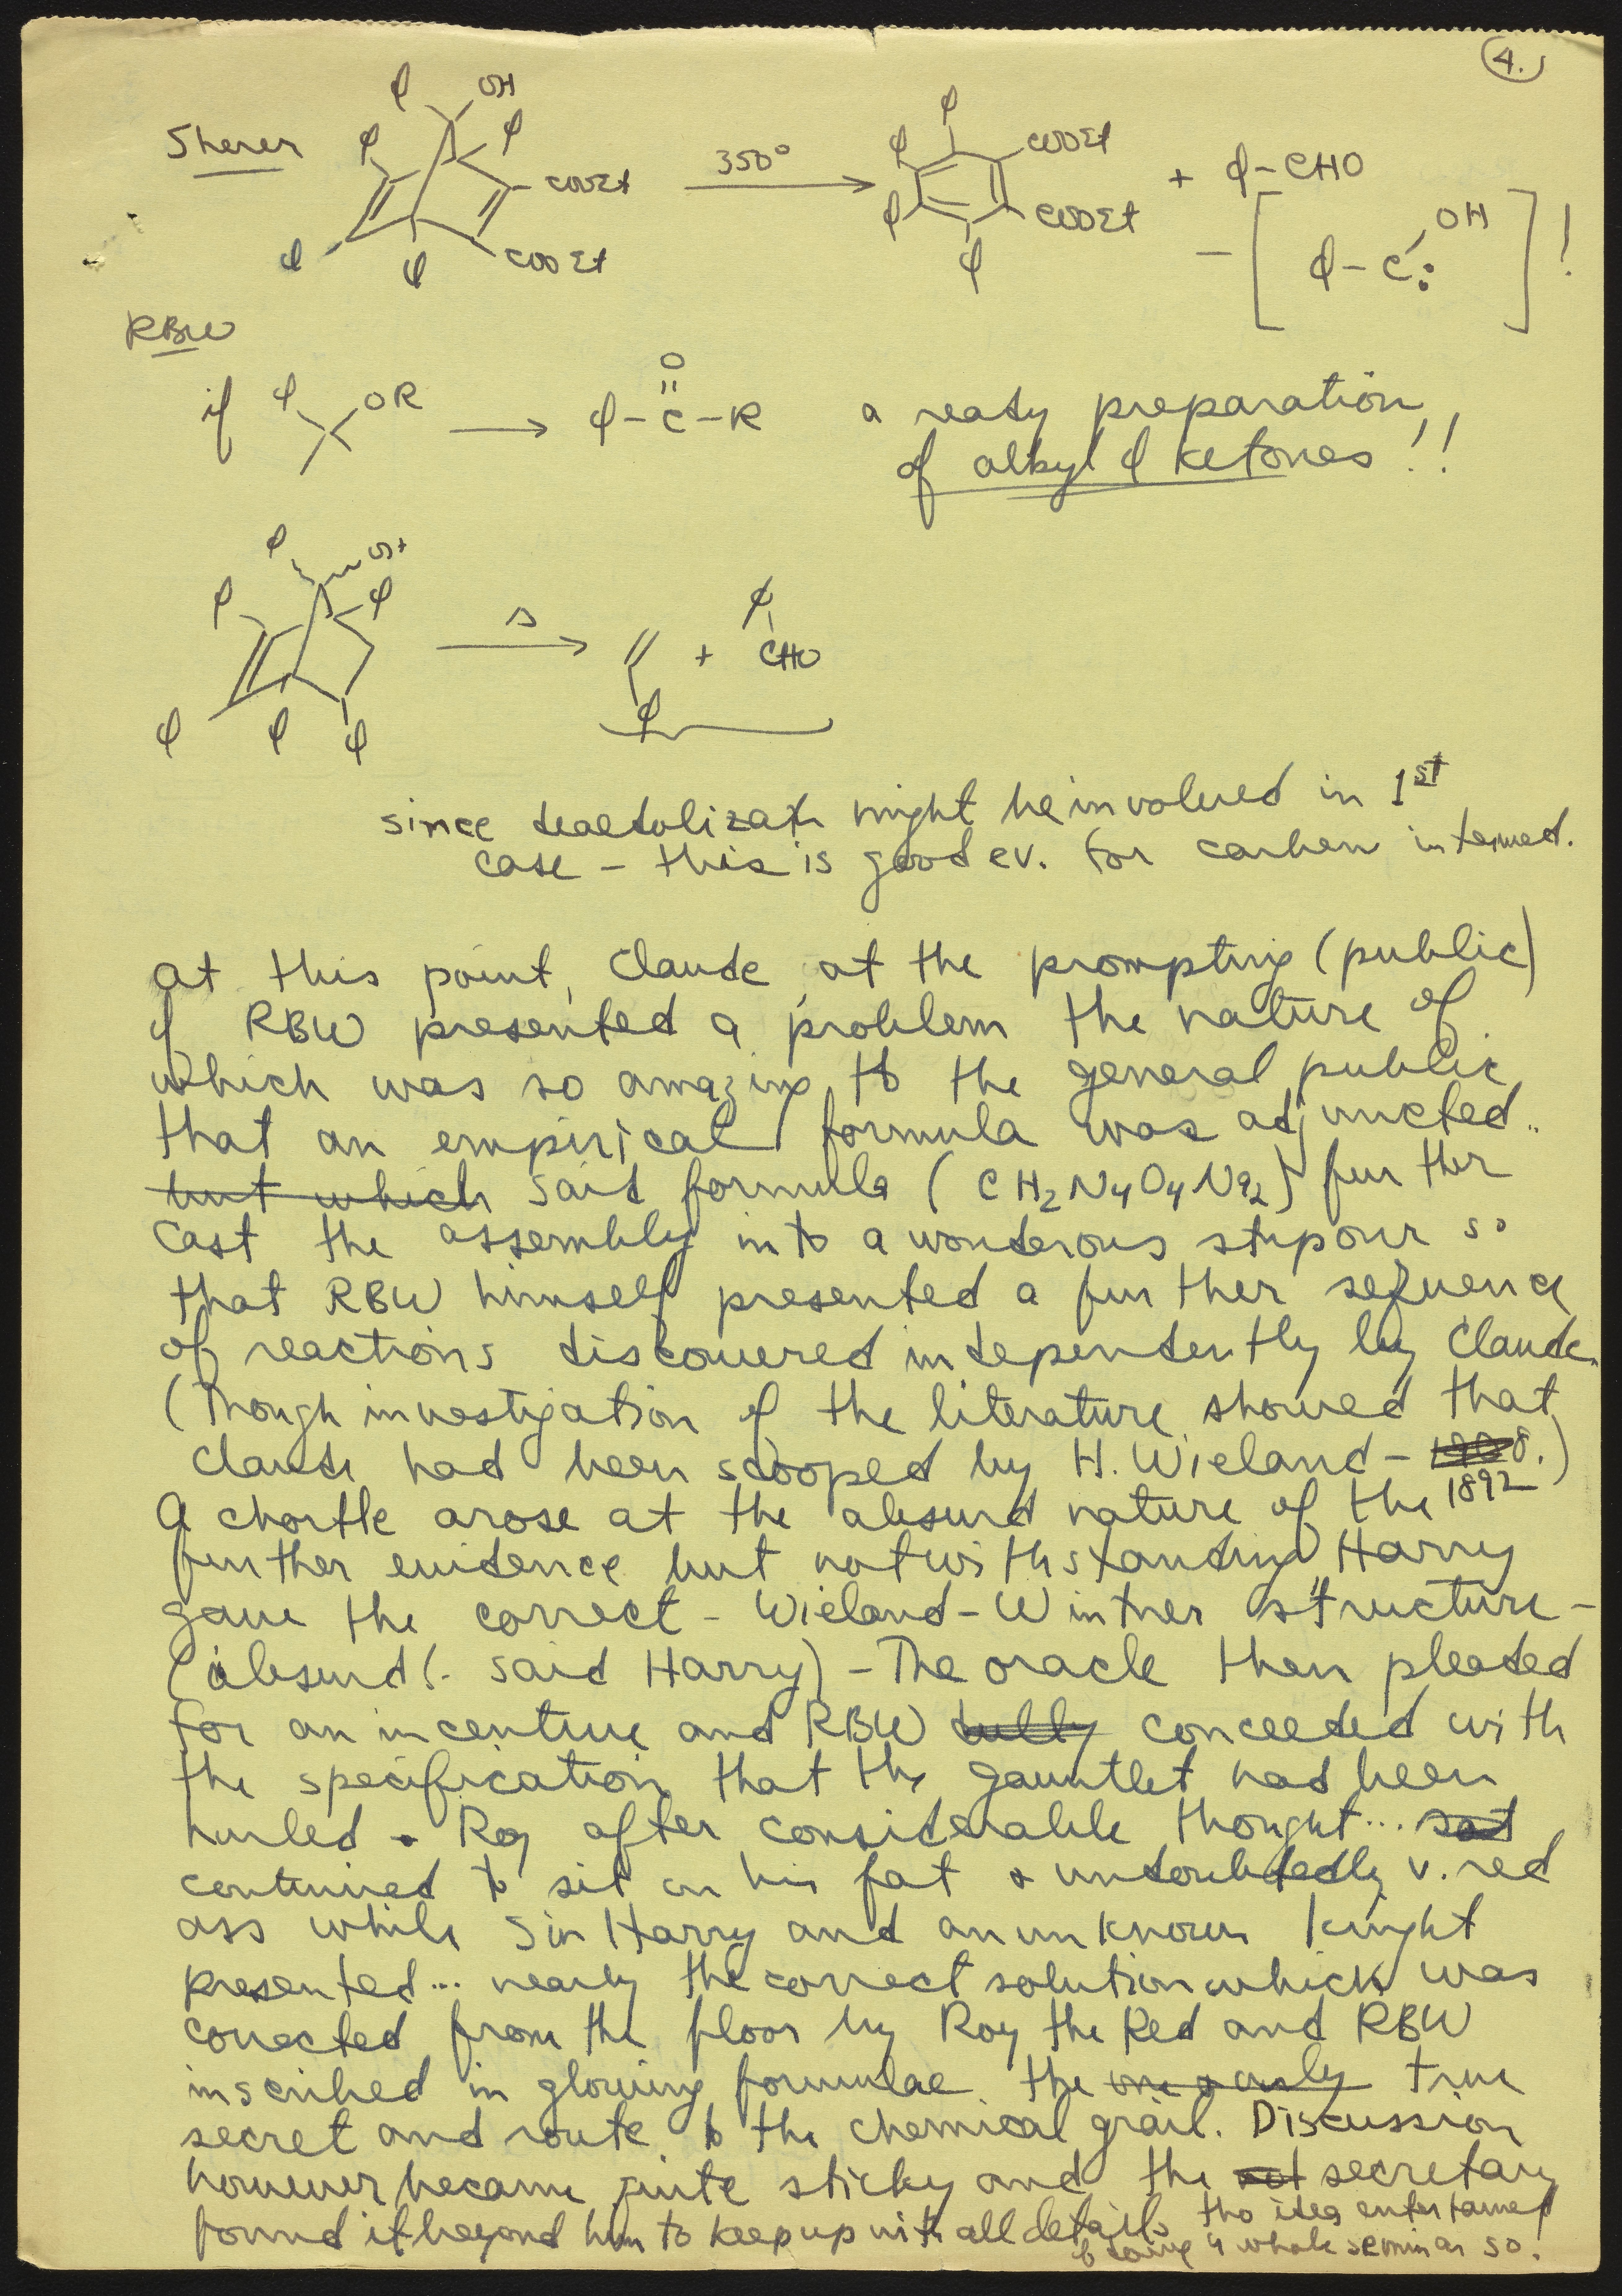 4.
Sherer
φ OH
φ φ
COOEt
φ φ COOEt
350°
φ
φ COOEt
φ COOEt
φ
+ φ-CHO
- [ φ-C: OH ] !
RBW
if φ OR → φ-C-R a ready preparation
O
of alkyl φ ketones!!
φ
φ φ
φ φ φ
Δ
+ φ
CHO
φ
since dealdolizatn might be involved in 1st
case - this is good ev. for carben intermed.
at this point, Claude, at the prompting (public)
of RBW presented a problem the nature of
which was so amazing to the general public
that an empirical formula was adjuncted..
but which said formula (CH2N4O4Na2) further
cast the assembly into a wonderous stupour so
that RBW himself presented a further sequence
of reactions discovered independently by Claude.
(Though investigation of the literature showed that
Claude had been scooped by H. Wieland - 1908.)
1892
A chortle arose at the absurd nature of the
further evidence but notwithstanding Harry
gave the correct - Wieland-Wintner structure -
(absurd! - said Harry) - The oracle then pleaded
for an incentive and RBW conceeded with
the specification that the gauntlet had been
hurled. Roy after considerable thought... sat
continued to sit on his fat & undoubtedly v. red
ass while Sir Harry and an unknown knight
presented... nearly the correct solution which was
corrected from the floor by Roy the Red and RBW
inscribed in glowing formulae the one & only true
secret and route to the chemical grail. Discussion
however became quite sticky and the secretary
found it beyond him to keep up with all details tho idea entertained
of doing a whole seminar so.